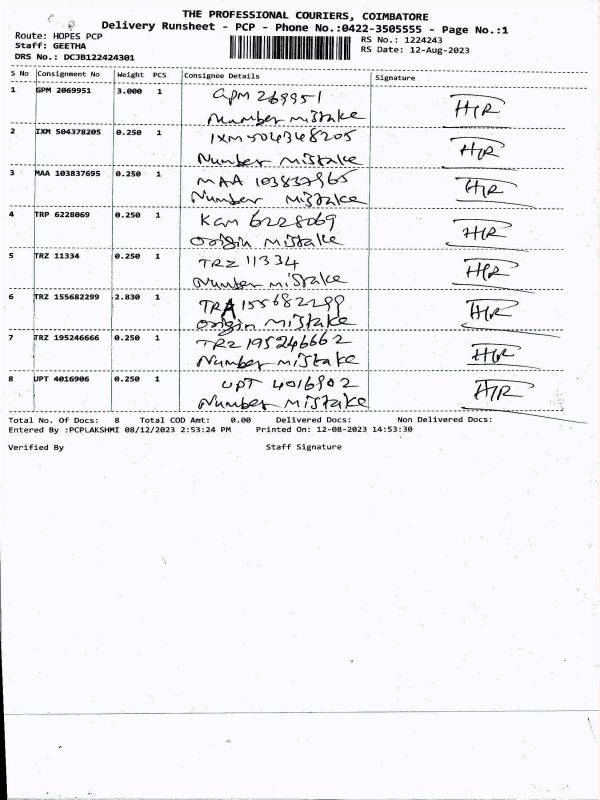 THE PROFESSIONAL COURIERS, COIMBATORE
Delivery Runsheet - PCP - Phone No.:0422-3505555 - Page No.:1
Route: HOPES PCP
Staff: GEETHA
DRS No.: DCJB122424301
RS No.: 1224243
RS Date: 12-Aug-2023
S No Consignment No Weight PCS Consignee Details Signature
1 GPM 2069951 3.000 1 GPM 269951
Number mistake
HR
2 IXM 504378205 0.250 1 IXM 504348205
Number mistake
HR
3 MAA 103837695 0.250 1 MAA 103837965
Number mistake
HR
4 TRP 6228069 0.250 1 KGM 6228069
Origin mistake
HR
5 TRZ 11334 0.250 1 TRZ 11334
Number mistake
HR
6 TRZ 155682299 2.830 1 TRA 155682299
Origin mistake
HR
7 TRZ 195246666 0.250 1 TRZ 195246662
Number mistake
HR
8 UPT 4016906 0.250 1 UPT 4016902
Number mistake
HR
Total No. Of Docs: 8 Total COD Amt: 0.00 Delivered Docs: Non Delivered Docs:
Entered By :PCPLAKSHMI 08/12/2023 2:53:24 PM Printed On: 12-08-2023 14:53:30
Verified By Staff Signature